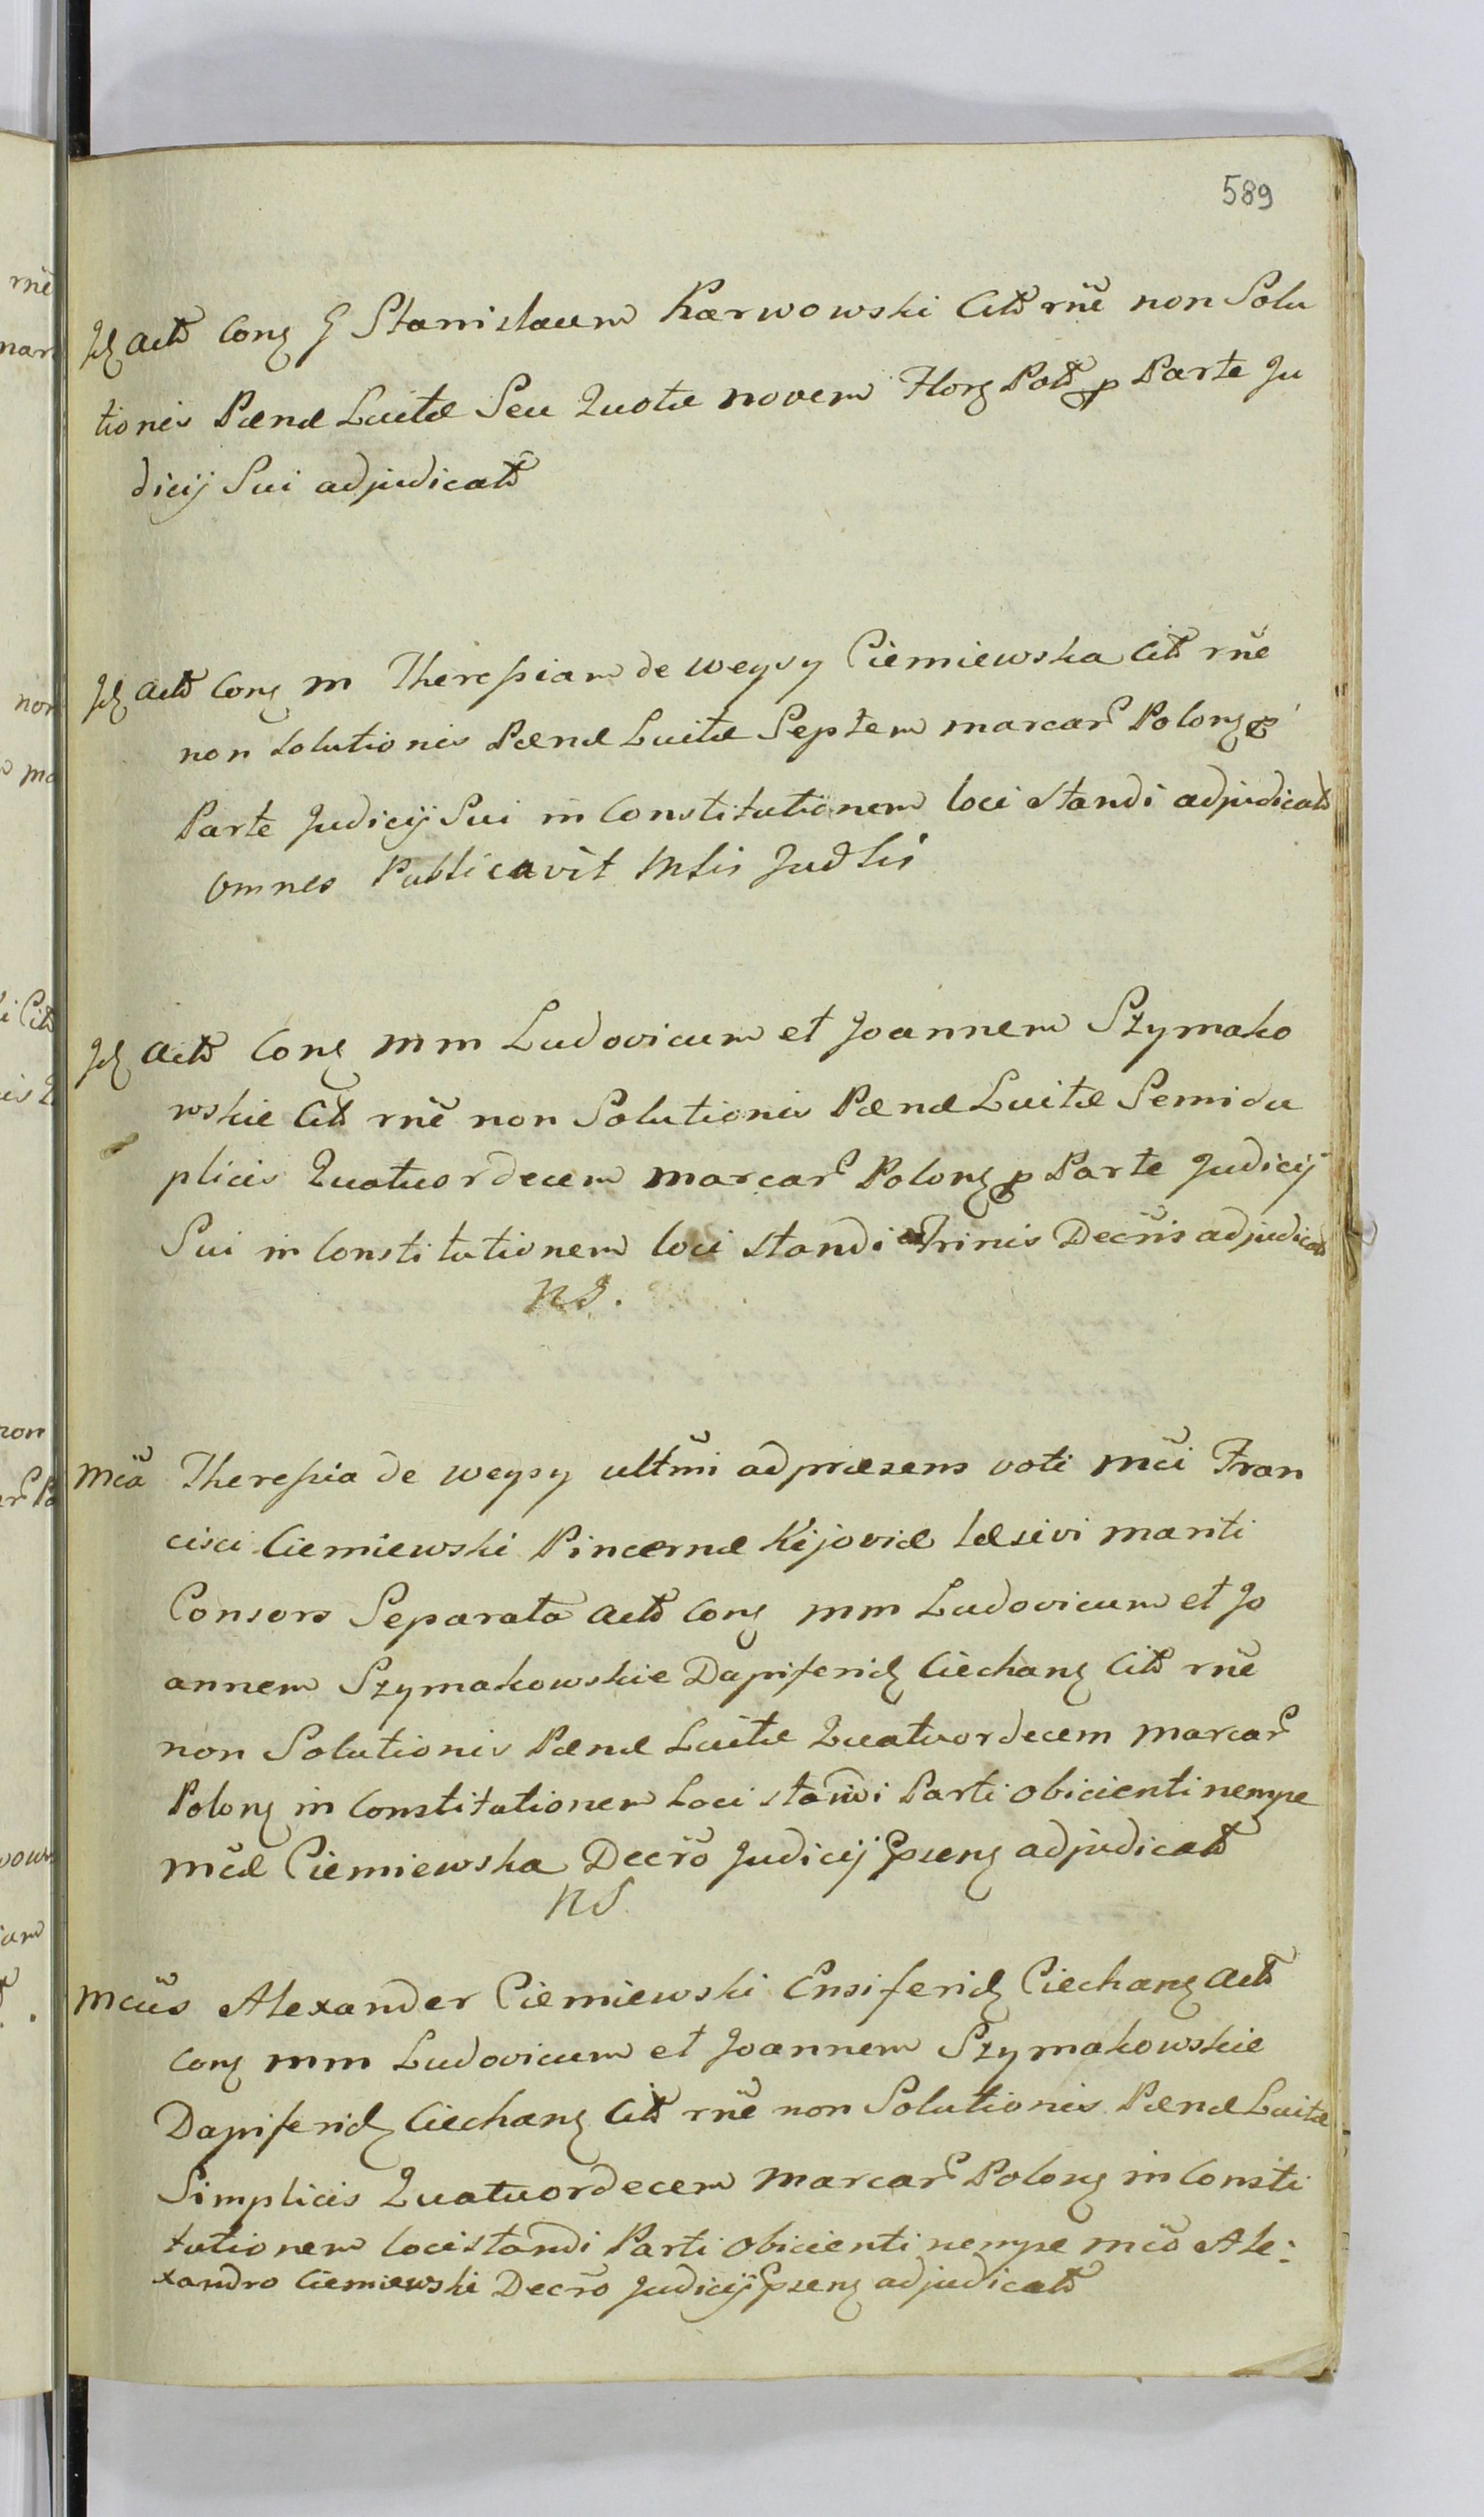 589
Id Actt Cong G Stanislaum Karwowski Citt rñe non Solu
tionis Pænæ Luitæ Seu Quotæ novem Flong Poll p Parte Ju
dicij Sui adjudicatt
Id Actt Cong M Theressiam de Weysy Ciemiewska Citt rñe
non Solutionis Pænæ Luitæ Septem marcar Polong p
Parte Judicij Sui in Constitutionem loci standi adjudicatt
Omnes Publicavit Mlis Judlis
Id Actt Cong MM Ludovicum et Joannem Szymako
wskie Citt rñe non Solutionis Pænæ Luitæ Semidu
plicis Quatuordecem marcar Polong p Parte Judicij
Sui in Constitutionem loci standi Trinis Decris adjudicatt
NS.
Mcã Theressia de Weysy ultmi ad præsens voti Mci Fran
cisci Ciemiewski Pincernæ Kijoviæ læsivi mariti
Consors Separata Actt Cong MM Ludovicum et Jo
annem Szymakowskie Dapiferid Ciechang Citt rñe
non Solutionis Pænæ Luitæ Quatuordecem marcar
Polong in Constitutionem Loci standi Parti Obicienti nempe
Mcæ Ciemiewska Decro Judicij Pseng adjudicatt
NS.
Mcus Alexander Ciemiewski Ensiferid Ciechang Actt
Cong MM Ludovicum et Joannem Szymakowskie
Dapiferid Ciechang Citt rñe non Solutionis Pænæ Luitæ
Simplicis Quatuordecem Marcar Polong in Consti
tutionem loci standi Parti Obicienti nempe Mco Ale:
xandro Ciemiewski Decro Judicij Pseng adjudicatt